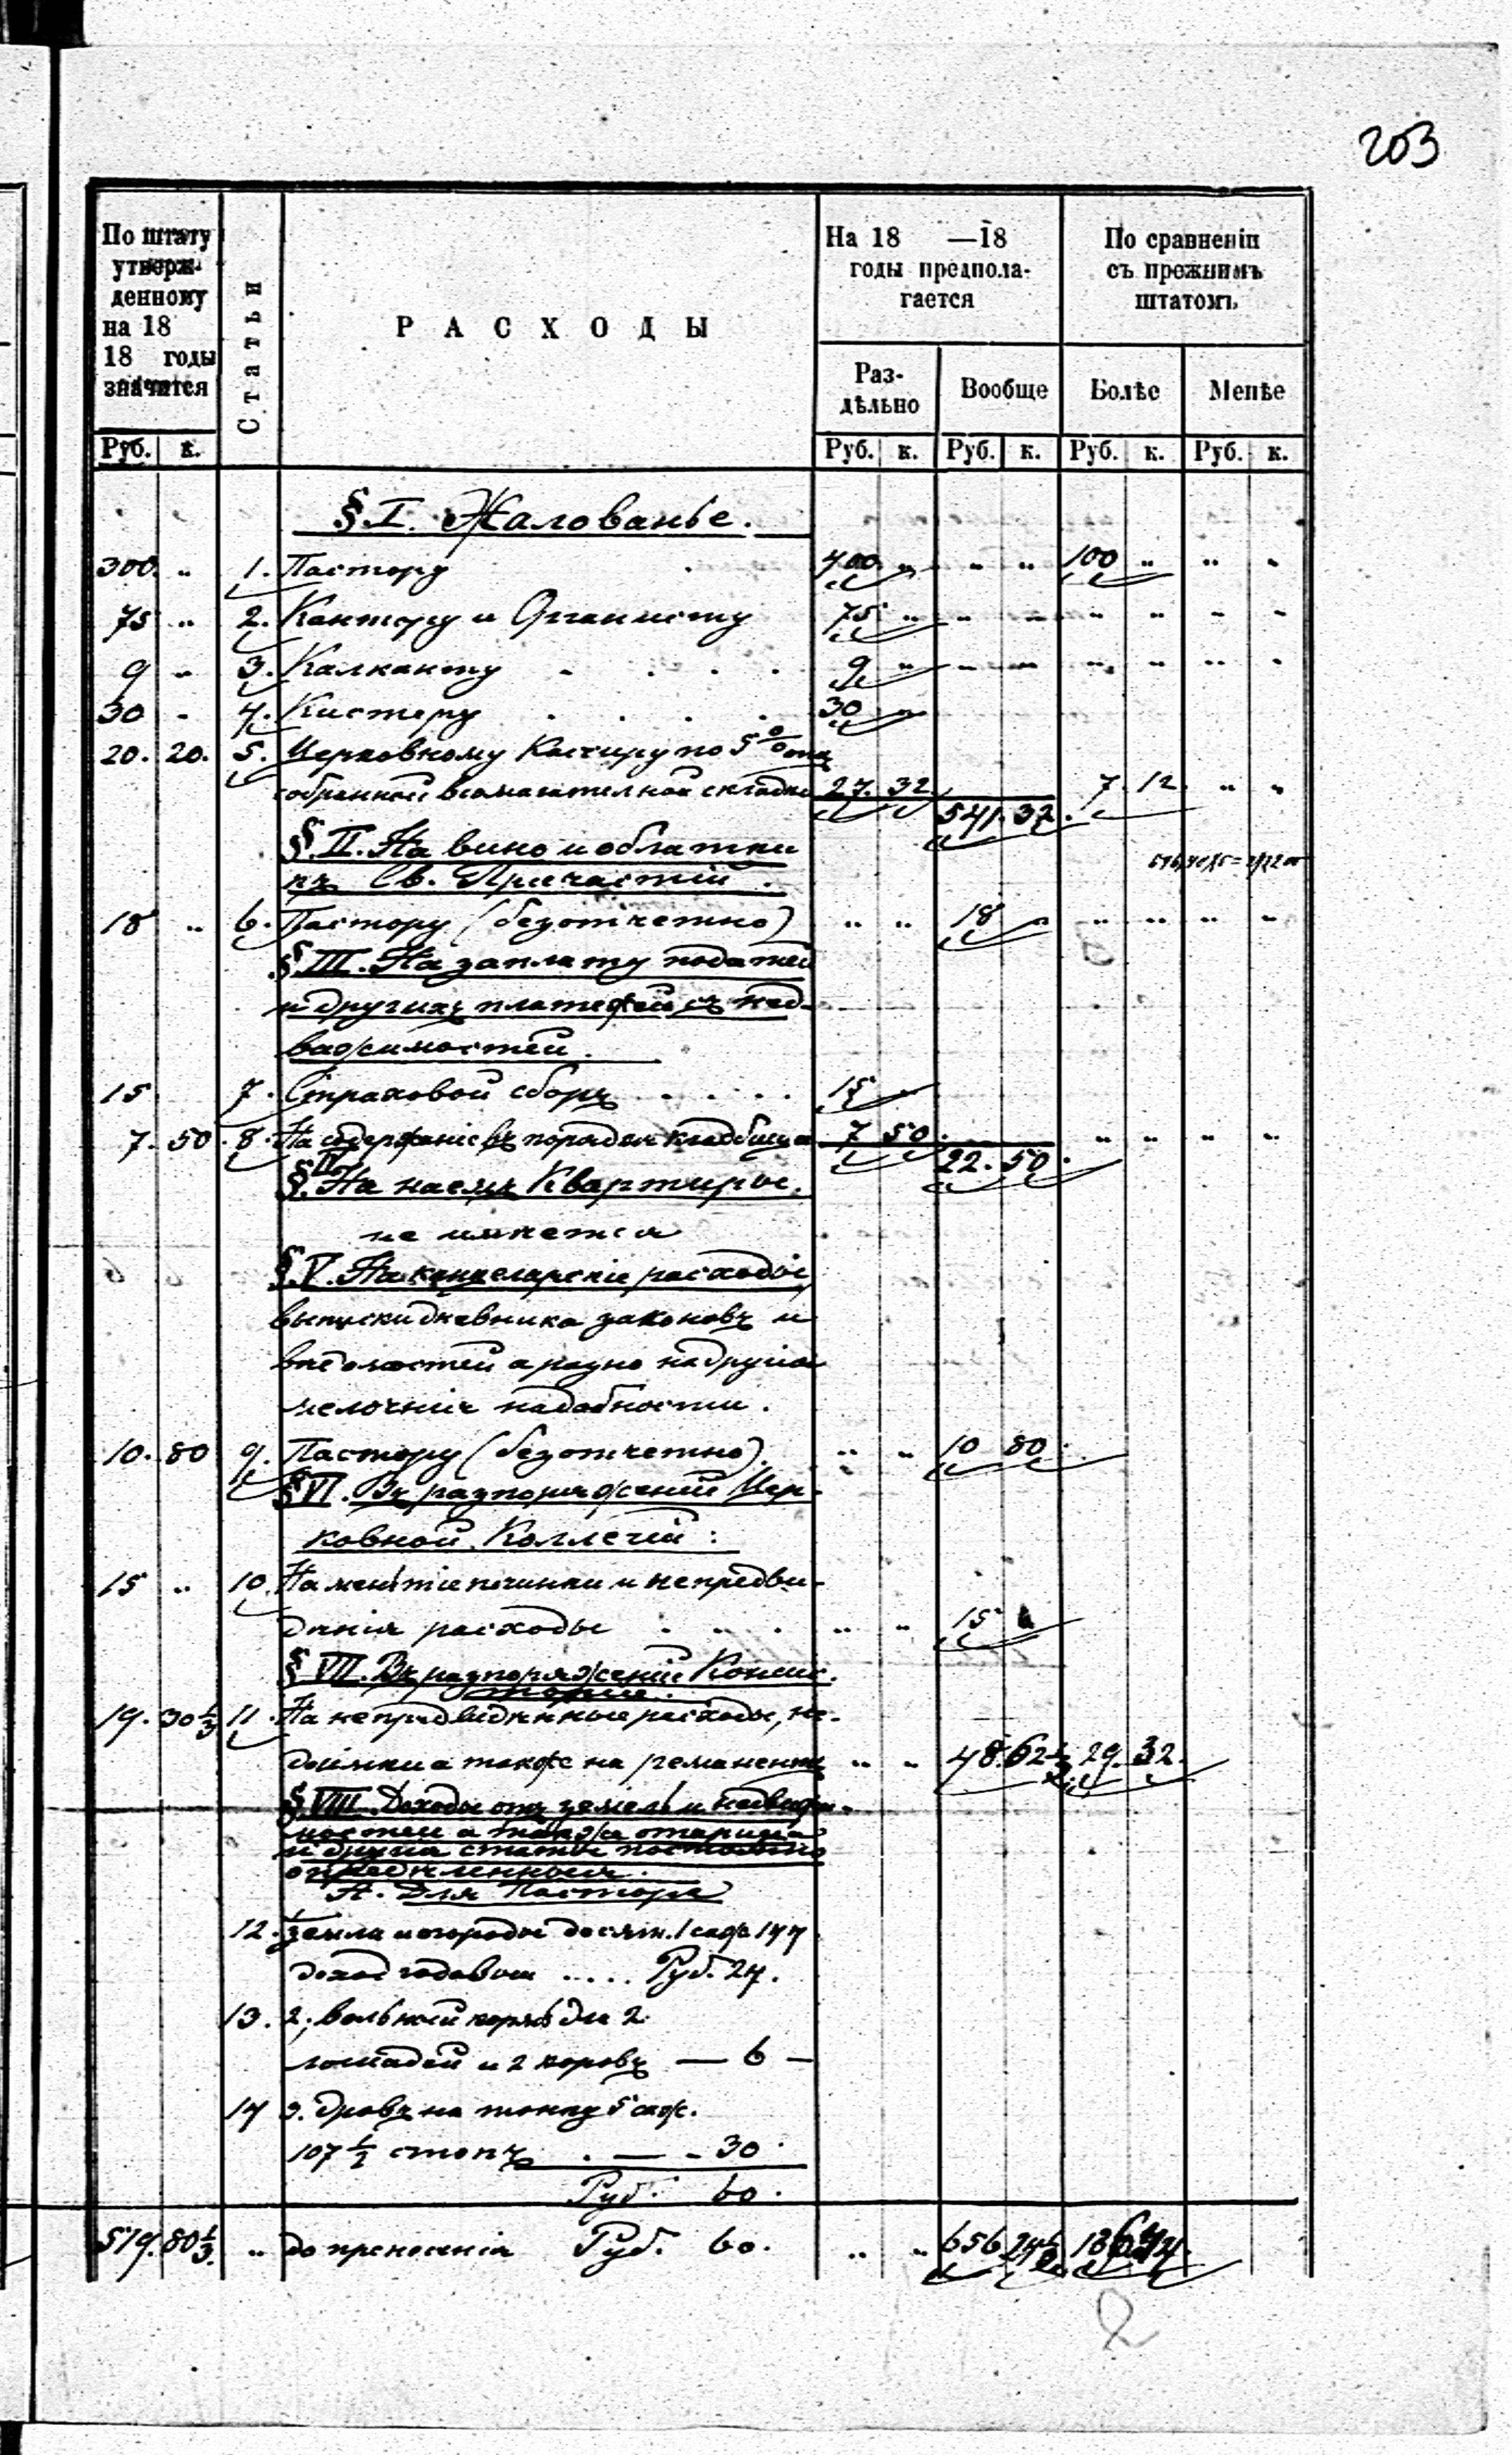 203
По штату утверж-денному на 18 18 годы значится
Статьи
РАСХОДЫ
На 18 —18 годы предпола-гается
По сравненіи съ прежнимъ штатомъ
Раз-дѣльно Вообще Болѣе Менѣе
Руб. к. Руб. к. Руб. к. Руб. к. Руб. к.
§.I. Жалованье.
300 „ 1. Пастору 400 „ „ „ 100 „ „ „
75 „ 2. Кантору и Органисту 75 „ „ „ „ „ „ „
9 „ 3. Калканту 9 „ „ „ „ „ „ „
30 - 4. Кистеру 30 „
20. 20. 5. Церковному Кассиру по 5 % отъ
собранной вспомагателной складки 27. 32. 7. 12. „ „
541. 32.
§.II. На вино и облатки
къ Св. Причастій.
18 „ 6. Пастору (безотчетно) „ „ 18 „ „ „ „ „
§.III. На заплату податей
и другихъ платежей съ нед-
важимостей.
15 7. Страховой сборъ 15 „
7. 50. 8. На содержаніе въ порядкѣ кладбища 7 50. „ „ „ „
22. 50.
§.IV. На наемъ Квартиры.
не имѣется
§.V. На канцеларскіе расходы,
выписки дневника законовъ и
вѣдомостей а разно на другія
мелочнія надобности.
10. 80 9. Пастору (безотчетно). „ „ 10 80.
§VI. Въ разпоряженіи Цер-
ковной Коллегіи:
15 „ 10. На мелкіе починки и непредви-
данія расходы „ „ 15
§ VII. Въ разпоряженіи Консис-
торіи.
19. 30⅓ 11. На непредвиданные расходы, не-
доимки а также на реманентъ „ „ 48. 62½ 29. 32.
§.VIII. Доходы отъ земель и недвижи-
мостей а также
и другія статьи постоянно
опредѣленныя.
А. Для Пастора
12. 1 Земля и огороды десятин. 1 саж. 144
доход годовой ..... Руб. 24.
13. 2, вольный кормъ для 2
лошадей и 2 коровъ — 6 —
14 3. дровъ на топку 5 саж.
107½ стопъ. — - 30.
Руб. 60.
519. 80⅓. „ до пренесенія Руб. 60. „ „ 656 24½ 136 44.
2